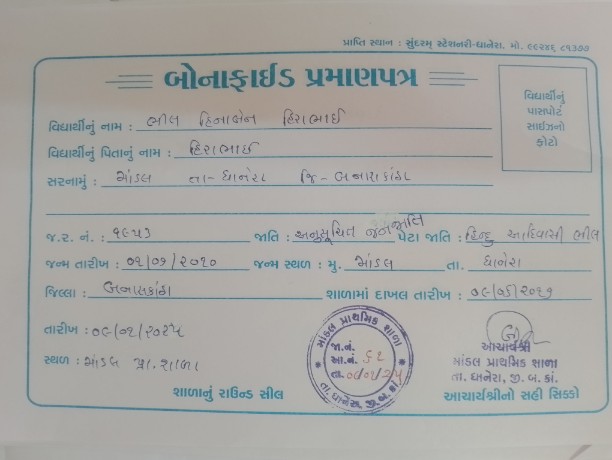 પ્રાપ્તિ સ્થાન : સુંદરમ્ સ્ટેશનરી-ધાનેરા. મો. ૯૯૨૪૬ ૮૧૩૭૭
બોનાફાઈડ પ્રમાણપત્ર
વિદ્યાર્થીનું પાસપોર્ટ સાઈઝનો ફોટો
વિદ્યાર્થીનું નામ : ભીલ હિનાબેન હિરાભાઈ
વિદ્યાર્થીનું પિતાનું નામ : હિરાભાઈ
સરનામું : માંડલ તા-ધાનેરા જિ-બનાસકાંઠા
જ.ર. નં. : ૧૯૫૩ જાતિ : અનુસૂચિત જનજાતિ પેટા જાતિ : હિન્દુ આદિવાસી ભીલ
જન્મ તારીખ : ૦૨/૦૭/૨૦૧૦ જન્મ સ્થળ : મુ. માંડલ તા. ધાનેરા
જિલ્લા : બનાસકાંઠા શાળામાં દાખલ તારીખ :
તારીખ : ૦૯/૦૨/૨૦૨૫
સ્થળ : માંડલ પ્રા. શાળા
શાળાનું રાઉન્ડ સીલ
માંડલ પ્રાથમિક શાળા
જા.નં.
આ.નં. ૬૨
તા.
તા. ધાનેરા, જી. બ. કાં.
આચાર્યશ્રી
માંડલ પ્રાથમિક શાળા
તા. ધાનેરા, જી. બ. કાં.
આચાર્યશ્રીનો સહી સિક્કો